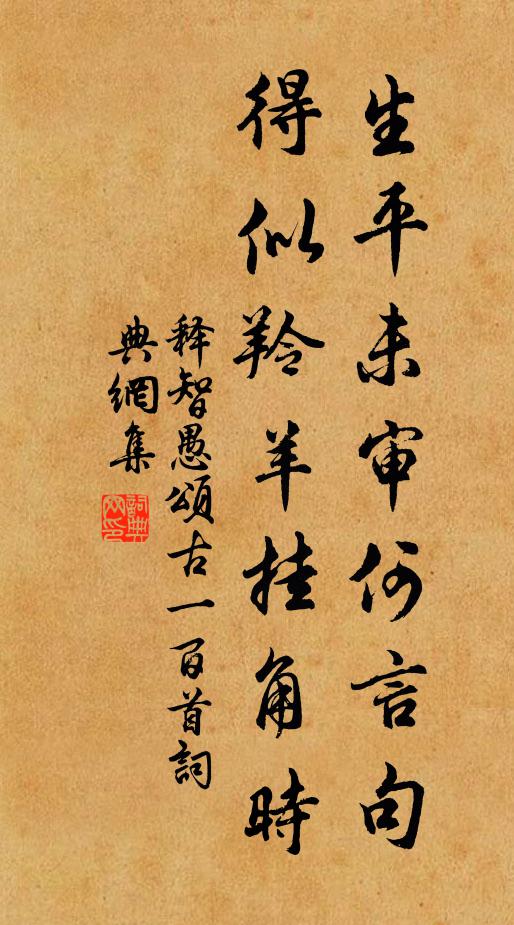 生平未审何言句
得似羚羊挂角時
释智愚頌古一百首詞
典網集
詞典網印